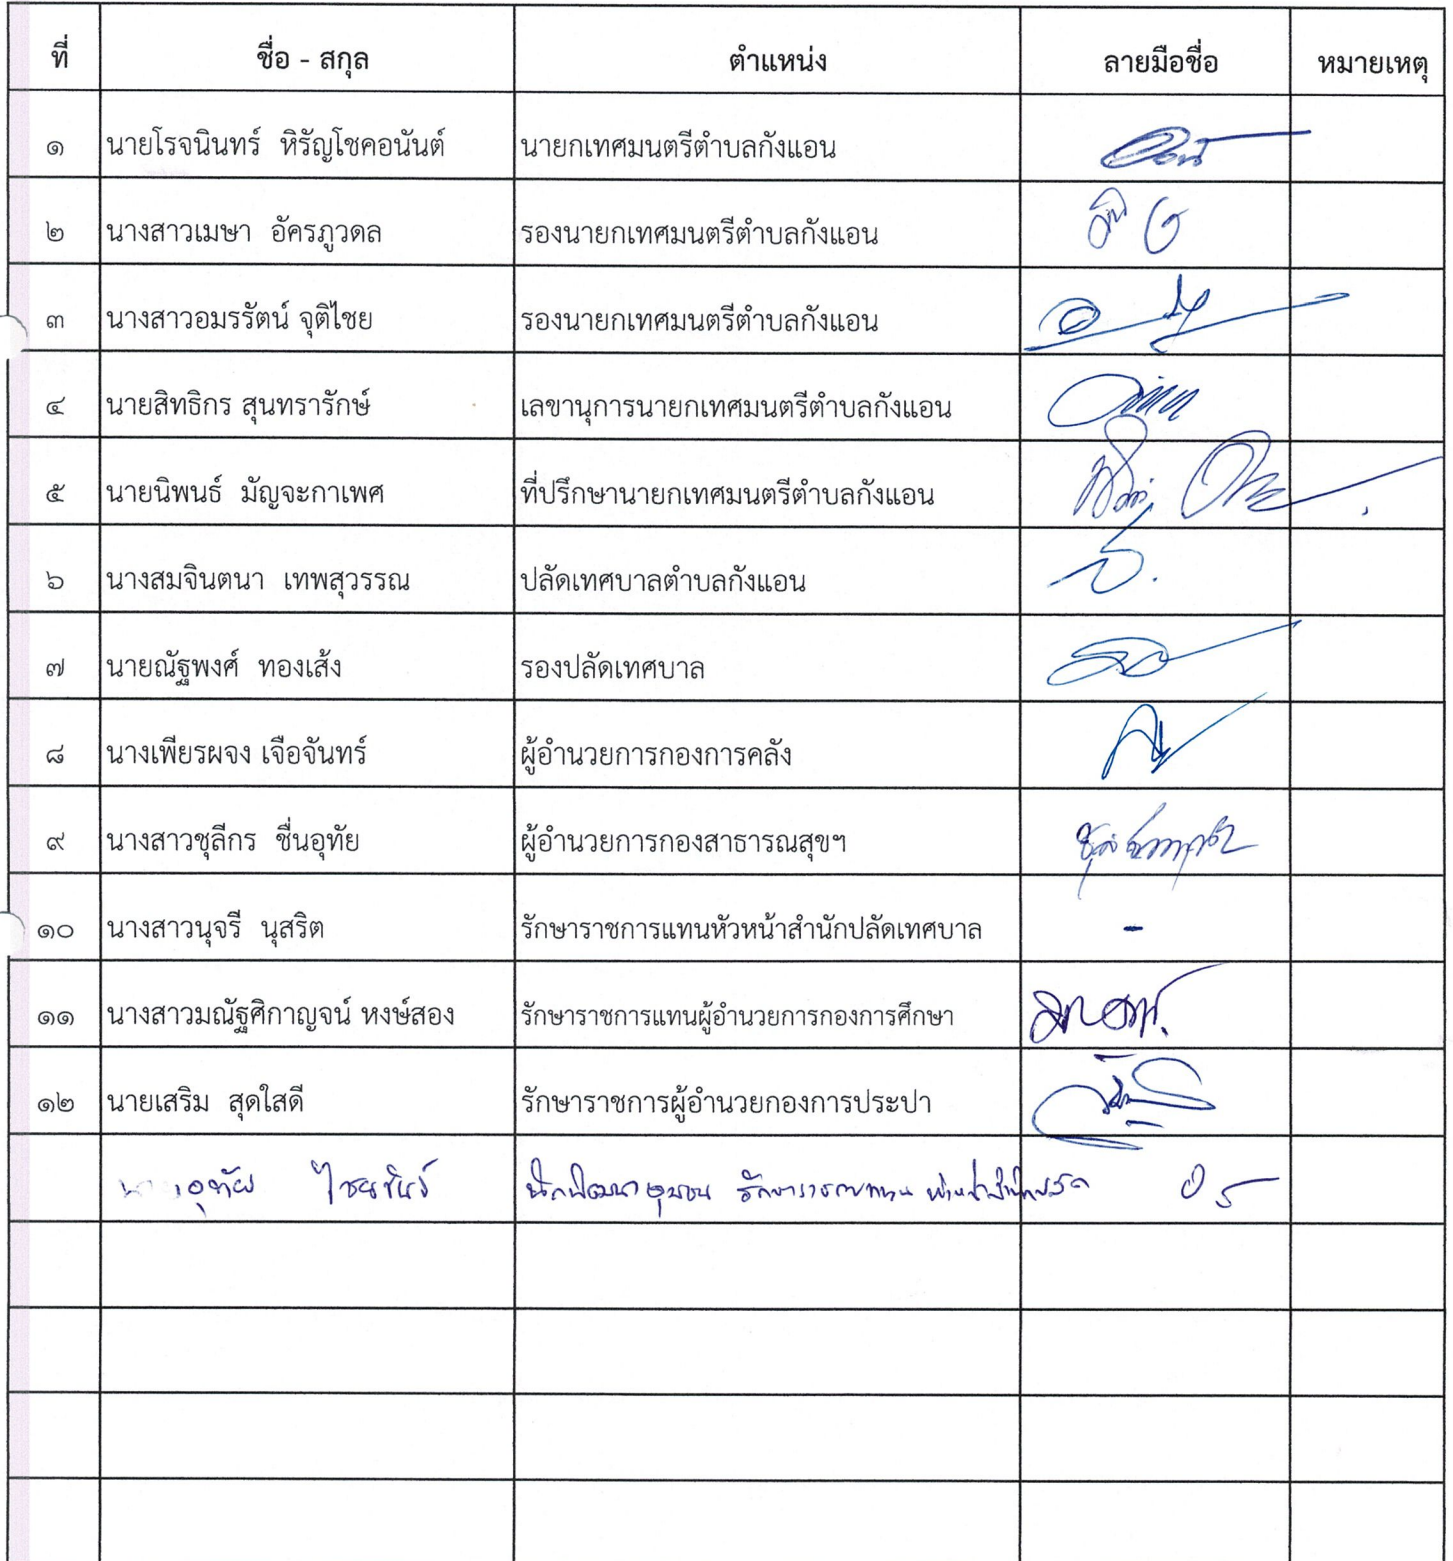 ที่ ชื่อ - สกุล ตำแหน่ง ลายมือชื่อ หมายเหตุ
๑ นายโรจนินทร์ หิรัญโชคอนันต์ นายกเทศมนตรีตำบลกังแอน
๒ นางสาวเมษา อัครภูวดล รองนายกเทศมนตรีตำบลกังแอน
๓ นางสาวอมรรัตน์ จุติไชย รองนายกเทศมนตรีตำบลกังแอน
๔ นายสิทธิกร สุนทรารักษ์ เลขานุการนายกเทศมนตรีตำบลกังแอน
๕ นายนิพนธ์ มัญจะกาเพศ ที่ปรึกษานายกเทศมนตรีตำบลกังแอน
๖ นางสมจินตนา เทพสุวรรณ ปลัดเทศบาลตำบลกังแอน
๗ นายณัฐพงศ์ ทองเส้ง รองปลัดเทศบาล
๘ นางเพียรผจง เจือจันทร์ ผู้อำนวยการกองการคลัง
๙ นางสาวชุลีกร ชื่นอุทัย ผู้อำนวยการกองสาธารณสุขฯ
๑๐ นางสาวนุจรี นุสริต รักษาราชการแทนหัวหน้าสำนักปลัดเทศบาล -
๑๑ นางสาวมณัฐศิกาญจน์ หงษ์สอง รักษาราชการแทนผู้อำนวยการกองการศึกษา
๑๒ นายเสริม สุดใสดี รักษาราชการผู้อำนวยกองการประปา
อุทัย นักพัฒนาชุมชน รักษาราชการแทน หัวหน้าสำนักปลัด